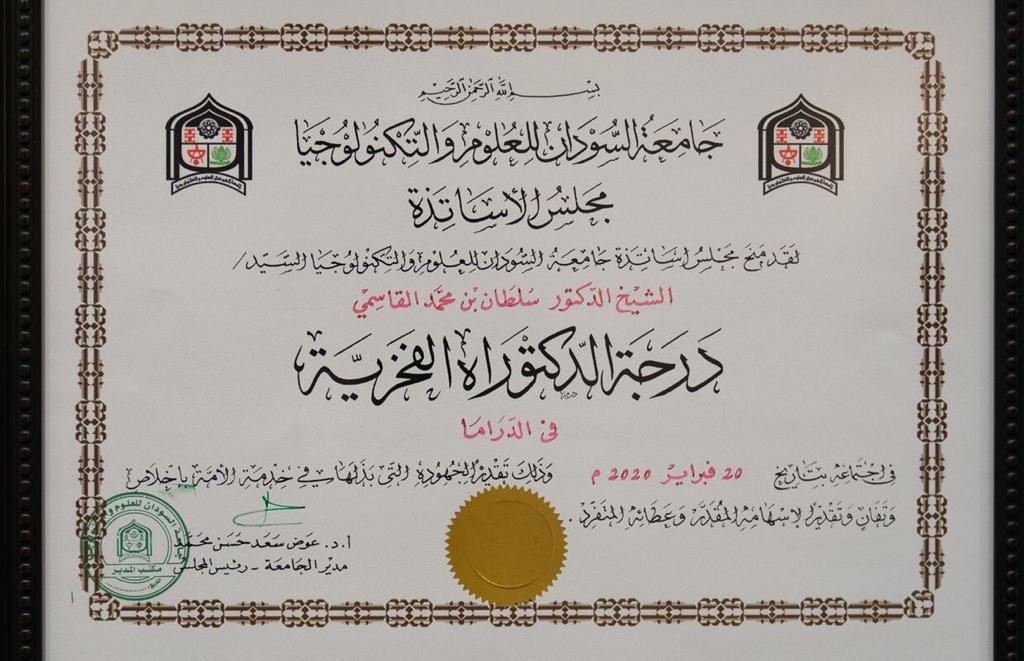 بسم الله الرحمن الرحيم
جَامعَةُ السُّودَان للعُلومِ وَالتِّكنُولُوجيَا
مَجلسُ الأسَاتذَة
لَقَد مَنَحَ مَجلسُ اسَاتذَة جَامعَة السُّودَان للعُلوم وَالتّكنُولُوجيَا السَّيد/
الشيخ الدكتور سُلطَان بن محمَّد القَاسمي
دَرَجَة الدّكتوراه الفَخريَّة
في الدّرَامَا
في اجتمَاعه بتَاريخ 20 فبراير 2020 م وَذَلكَ تَقديرًا لجُهُوده التي بَذَلهَا في خدمَة الأمَّة بإخلاص
وَتَفَان وَتَقديرًا لإسهَامه المُقَدَّر وَعَطَائه المُتَفَرّد .
أ.د. عوض سَعد حَسَن محمد
مدير الجامعَة - رَئيس المجلس
جامعة السودان للعلوم و
مكتب المدير